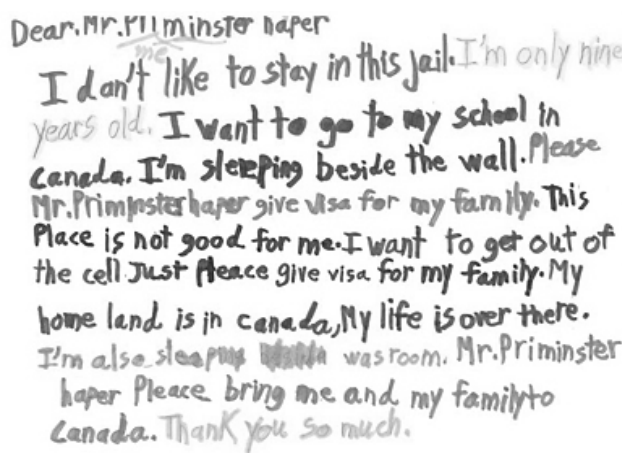 Dear.Mr.Priminster haper
me
I don't like to stay in this jail. I'm only nine
years old. I want to go to my school in
canada. I'm sleeping beside the wall. Please
Mr.Priminster haper give visa for my family. This
Place is not good for me. I want to get out of
the cell. Just Pleace give visa for my family. My
home land is in canada, My life is over there.
I'm also sleeping was room. Mr.Priminster
haper Pleace bring me and my family to
Canada. Thank you so much.